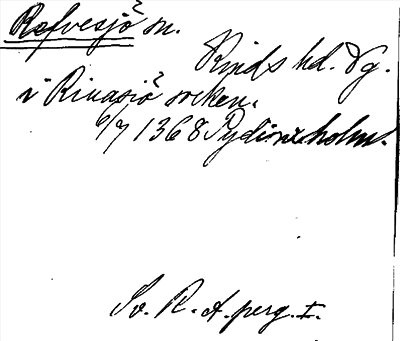 Refvesjö sn.
Kinds hd. Vg.
i Rinasjö socken.
6/7 1368 Pydinxholm.
Sv. R. A. perg. I.